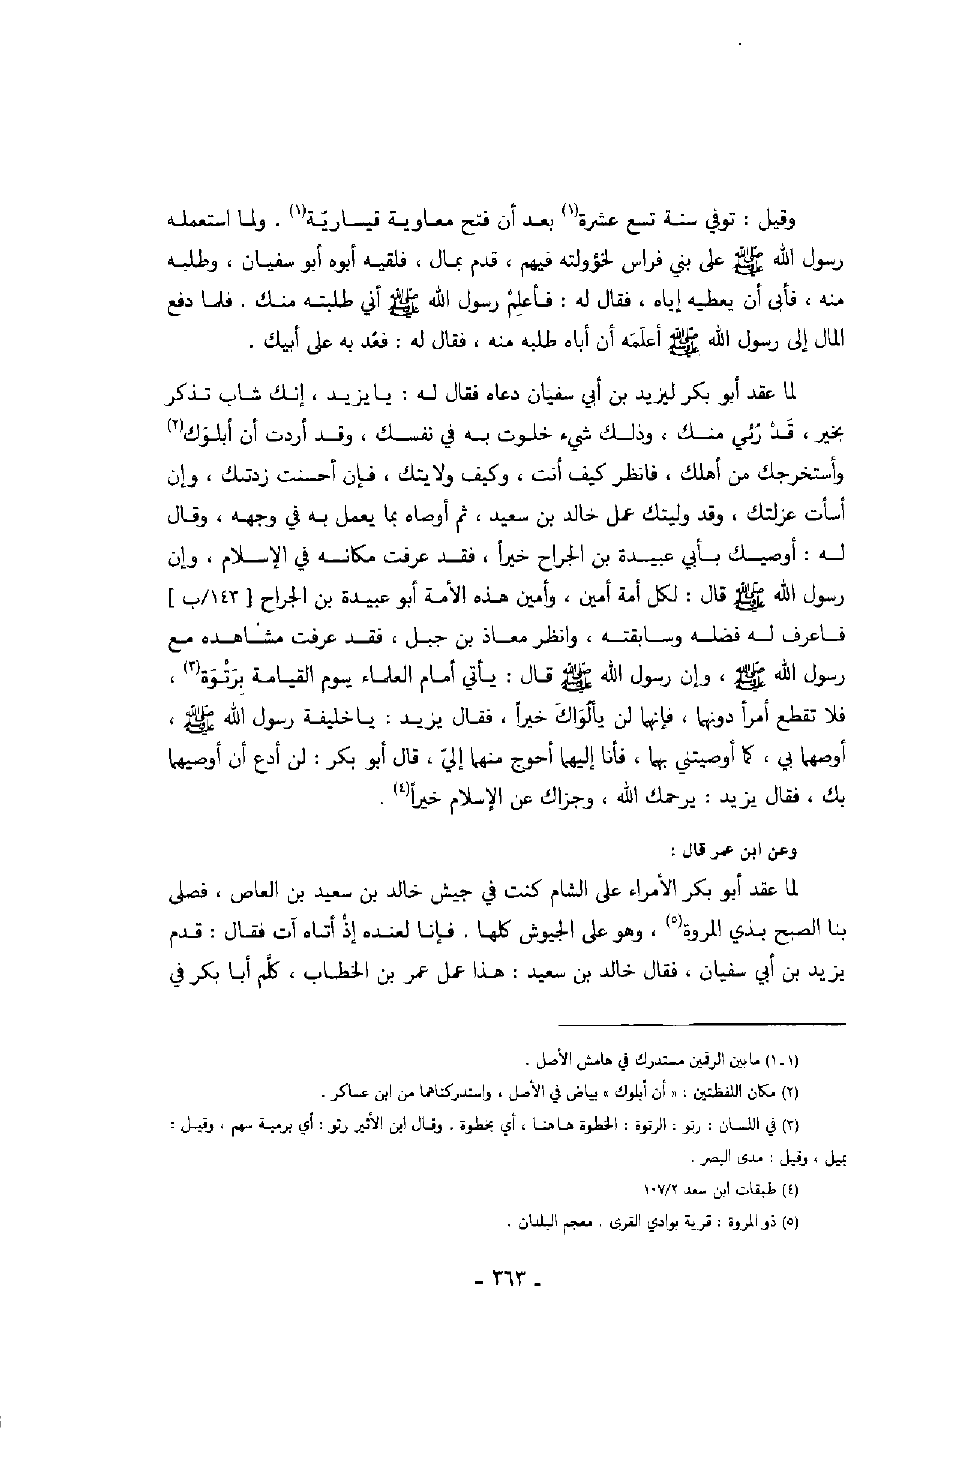 وقيل : توفي سنة تسع عشرة(١) بعد أن فتح معاوية قيساريّة(١) . ولما استعمله
رسول الله ﷺ على بني فراس لخؤولته فيهم ، قدم بمال ، فلقيه أبوه أبو سفيان ، وطلبه
منه ، فأبى أن يعطيه إياه ، فقال له : فأعلِمْ رسول الله ﷺ أني طلبته منك . فلما دفع
المال إلى رسول الله ﷺ أعلَمَه أن أباه طلبه منه ، فقال له : فعُد به على أبيك .
لما عقد أبو بكر ليزيد بن أبي سفيان دعاه فقال له : يا يزيد ، إنك شاب تذكر
بخير ، قَدْ رُئي منك ، وذلك شيء خلوت به في نفسك ، وقد أردت أن أبلوَك(٢)
وأستخرجك من أهلك ، فانظر كيف أنت ، وكيف ولايتك ، فإن أحسنت زدتك ، وإن
أسأت عزلتك ، وقد وليتك عمل خالد بن سعيد ، ثم أوصاه بما يعمل به في وجهه ، وقال
له : أوصيك بأبي عبيدة بن الجراح خيراً ، فقد عرفت مكانه في الإسلام ، وإن
رسول الله ﷺ قال : لكل أمة أمين ، وأمين هذه الأمة أبو عبيدة بن الجراح [ ١٤٣/ب ]
فاعرف له فضله وسابقته ، وانظر معاذ بن جبل ، فقد عرفت مشاهده مع
رسول الله ﷺ ، وإن رسول الله ﷺ قال : يأتي أمام العلماء يوم القيامة بِرَتْوَة(٣) ،
فلا تقطع أمراً دونها ، فإنها لن يألُوَاكَ خيراً ، فقال يزيد : يا خليفة رسول الله ﷺ ،
أوصها بي ، كما أوصيتني بها ، فأنا إليها أحوج منها إليّ ، قال أبو بكر : لن أدع أن أوصيها
بك ، فقال يزيد : يرحمك الله ، وجزاك عن الإسلام خيراً(٤) .
وعن ابن عمر قال :
لما عقد أبو بكر الأمراء على الشام كنت في جيش خالد بن سعيد بن العاص ، فصلى
بنا الصبح بذي المروة(٥) ، وهو على الجيوش كلها . فإنا لعنده إذْ أتاه آت فقال : قدم
يزيد بن أبي سفيان ، فقال خالد بن سعيد : هذا عمل عمر بن الخطاب ، كلّم أبا بكر في
(١-١) ما بين الرقمين مستدرك في هامش الأصل .
(٢) مكان اللفظتين : « أن أبلوك » بياض في الأصل ، واستدركناهما من ابن عساكر .
(٣) في اللسان : رتو : الرتوة : الخطوة هاهنا ، أي بخطوة . وقال ابن الأثير رتو : أي برمية سهم ، وقيل :
بميل ، وقيل : مدى البصر .
(٤) طبقات ابن سعد ١٠٧/٢
(٥) ذو المروة : قرية بوادي القرى . معجم البلدان .
- ٣٦٣ -